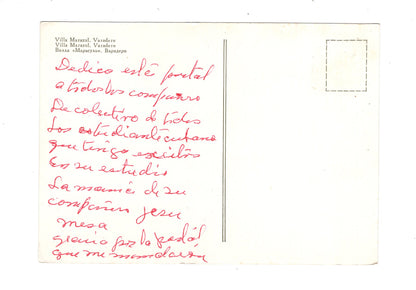 Villa Marazul, Varadero
Villa Marazul, Varadero
Вилла «Марасуль», Варадеро
Dedico esté postal
a todos los compañero
De colectivo de todos
Los estudiante cubano
que tengo exsitos
En su estudio
La mamá de su
compañero Jesu
mesa
gracia por la postal
que me mandaron